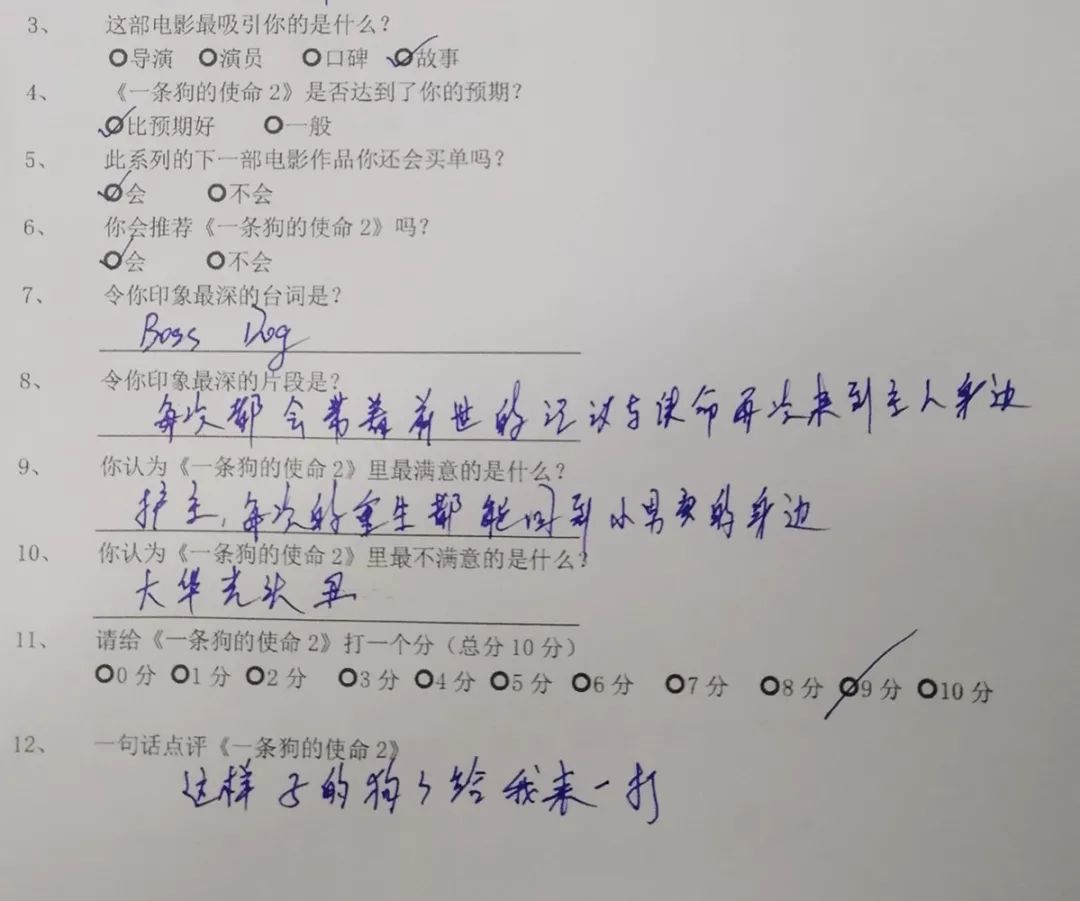 3、 这部电影最吸引你的是什么?
导演 演员 口碑 故事
4、 《一条狗的使命 2》是否达到了你的预期?
比预期好 一般
5、 此系列的下一部电影作品你还会买单吗?
会 不会
6、 你会推荐《一条狗的使命 2》吗?
会 不会
7、 令你印象最深的台词是?
Boss Dog
8、 令你印象最深的片段是?
每次都会带着前世的记忆与使命再次来到主人身边
9、 你认为《一条狗的使命 2》里最满意的是什么?
护主,每次的重生都能回到小男孩的身边
10、 你认为《一条狗的使命 2》里最不满意的是什么?
大华光头丑
11、 请给《一条狗的使命 2》打一个分(总分 10 分)
0 分 1 分 2 分 3 分 4 分 5 分 6 分 7 分 8 分 9 分 10 分
12、 一句话点评《一条狗的使命 2》
这样子的狗狗给我来一打